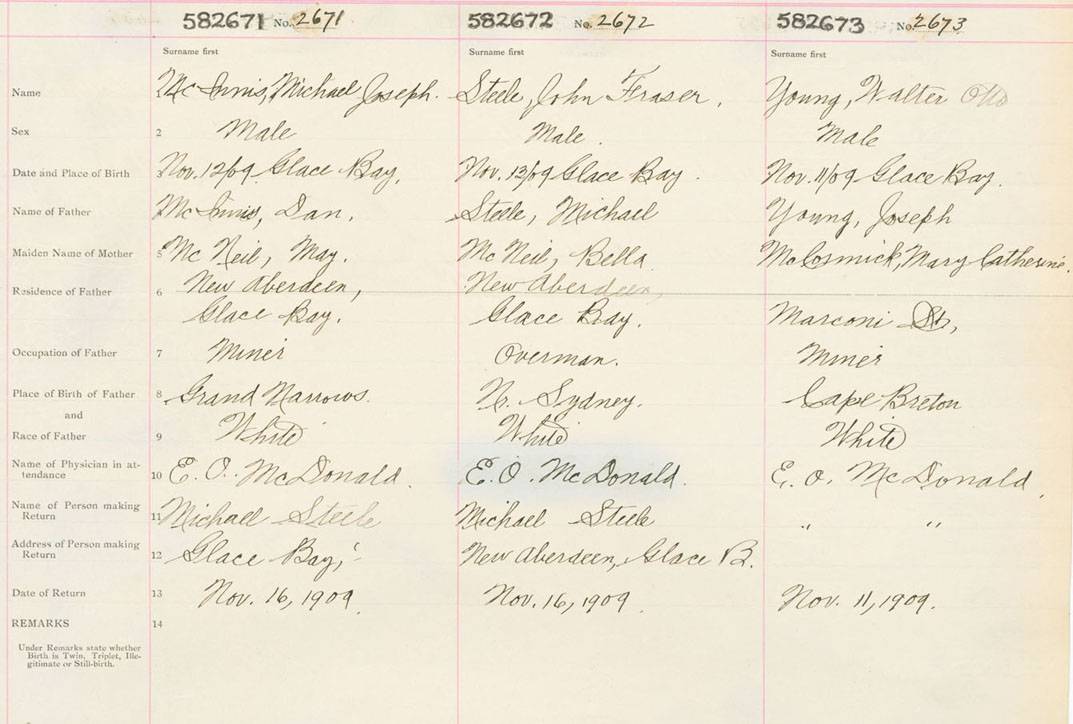 582671 No. 2671 582672 No. 2672 582673 No. 2673
Surname first Surname first Surname first
Name 1 McInnis, Michael Joseph. Steele, John Fraser. Young, Walter Otto
Sex 2 Male Male. Male
Date and Place of Birth 3 Nov. 12/09 Glace Bay, Nov. 13/09 Glace Bay. Nov. 11/09 Glace Bay.
Name of Father McInnis, Dan. Steele, Michael Young, Joseph
Maiden Name of Mother 5 McNeil, May. McNeil, Bella McCosmick, Mary Catherine.
Residence of Father 6 New Aberdeen, New Aberdeen,
Glace Bay. Glace Bay. Marconi St,
Occupation of Father 7 Miner Overman. Miner
Place of Birth of Father 8 Grand Narrows. N. Sydney. Cape Breton
and
Race of Father 9 White White White
Name of Physician in at-
tendance 10 E. O. McDonald. E. O. McDonald. E. O. McDonald.
Name of Person making
Return 11 Michael Steele Michael Steele " "
Address of Person making
Return 12 Glace Bay, New Aberdeen, Glace B.
Date of Return 13 Nov. 16, 1909 Nov. 16, 1909. Nov. 11, 1909.
REMARKS 14
Under Remarks state whether
Birth is Twin, Triplet, Ille-
gitimate or Still-birth.